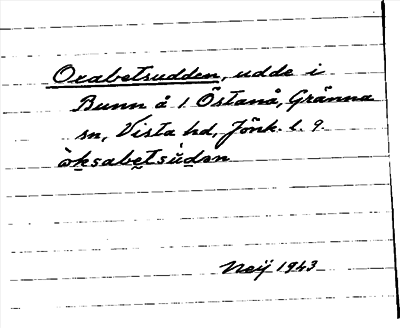 Oxabetsudden, udde i
Bunn å 1 Östanå, Gränna
sn, Vista hd, Jönk. l. 9.
òksabetsùdən
Neij 1943